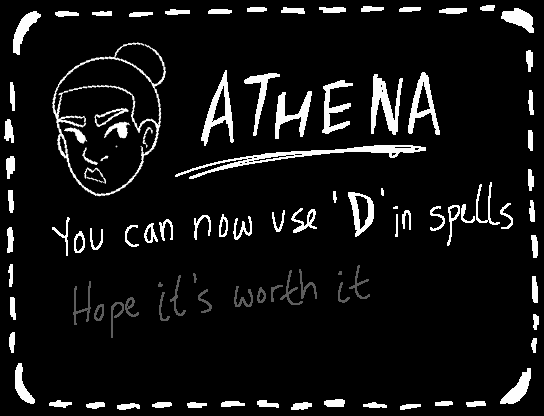 ATHENA
You can now use 'D' in spells
Hope it's worth it